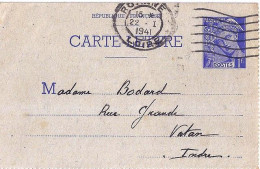 RÉPUBLIQUE FRANÇAISE
CARTE-LETTRE
ROANNE
22 - I
1941
LOIRE
POSTES
Madame Bodard
Rue Grande
Vatan
Indre